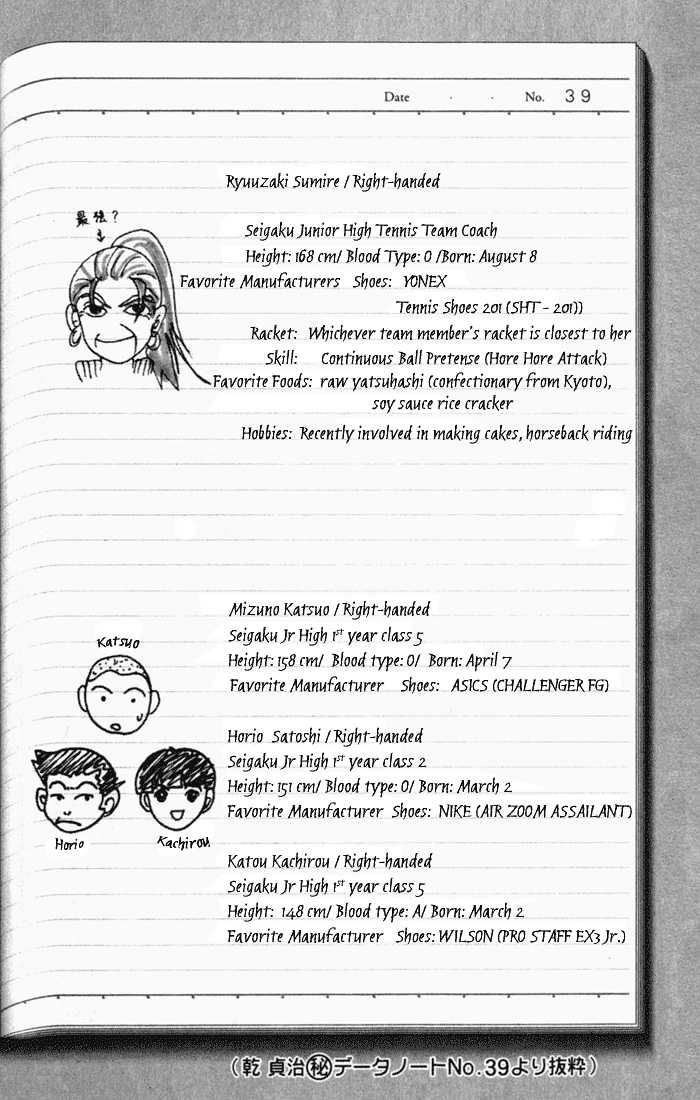 Date . . No. 39
Ryuuzaki Sumire / Right-handed
最強?
Seigaku Junior High Tennis Team Coach
Height: 168 cm/ Blood Type: O /Born: August 8
Favorite Manufacturers Shoes: YONEX
Tennis Shoes 201 (SHT - 201))
Racket: Whichever team member's racket is closest to her
Skill: Continuous Ball Pretense (Hore Hore Attack)
Favorite Foods: raw yatsuhashi (confectionary from Kyoto),
soy sauce rice cracker
Hobbies: Recently involved in making cakes, horseback riding
Mizuno Katsuo / Right-handed
Seigaku Jr High 1st year class 5
Height: 158 cm/ Blood type: O/ Born: April 7
Favorite Manufacturer Shoes: ASICS (CHALLENGER FG)
Katsuo
Horio Satoshi / Right-handed
Seigaku Jr High 1st year class 2
Height: 151 cm/ Blood type: O/ Born: March 2
Favorite Manufacturer Shoes: NIKE (AIR ZOOM ASSAILANT)
Horio
Kachirou
Katou Kachirou / Right-handed
Seigaku Jr High 1st year class 5
Height: 148 cm/ Blood type: A/ Born: March 2
Favorite Manufacturer Shoes: WILSON (PRO STAFF EX3 Jr.)
(乾 貞治㊙データノートNo.39より抜粋)